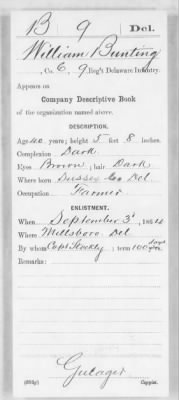 B 9 Del.
William Bunting
, Co. C, 9 Reg't Delaware Infantry.
Appears on
Company Descriptive Book
of the organization named above.
DESCRIPTION.
Age 40 years; height 5 feet 8 inches.
Complexion Dark
Eyes Brown; hair Dark
Where born Sussex Co Del
Occupation Farmer
ENLISTMENT.
When September 3d, 1864
Where Millsboro Del
By whom Capt Stockley; term 100 days
Remarks:
Gulager
Copyist.